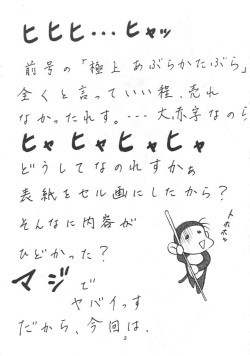 ヒヒヒ・・・ヒャッ
前号の「極上あぶらかたぶら」
全くと言っていい程、売れ
なかったれす。・・・大赤字なのら
ヒャヒャヒャヒャ
どうしてなのれすかぁ
表紙をセル画にしたから?
そんなに内容が
ひどかった?
マジで
ヤバイっす
だから、今回は、
トホホ